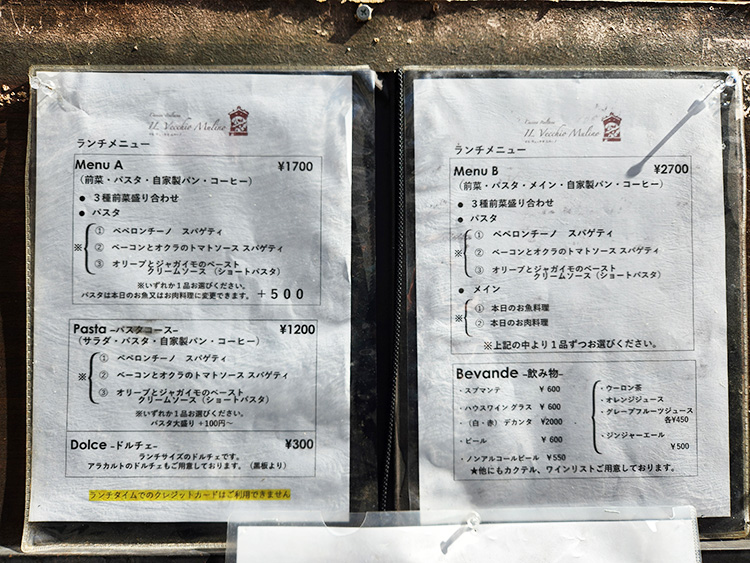 Cucina Italiana
IL Vecchio Mulino
ランチメニュー
Menu A ¥1700
(前菜・パスタ・自家製パン・コーヒー)
● 3種前菜盛り合わせ
● パスタ
① ペペロンチーノ スパゲティ
※ ② ベーコンとオクラのトマトソース スパゲティ
③ オリーブとジャガイモのペースト
クリームソース (ショートパスタ)
※いずれか1品お選びください。
パスタは本日のお魚又はお肉料理に変更できます。 +500
Pasta –パスタコース– ¥1200
(サラダ・パスタ・自家製パン・コーヒー)
① ペペロンチーノ スパゲティ
※ ② ベーコンとオクラのトマトソース スパゲティ
③ オリーブとジャガイモのペースト
クリームソース (ショートパスタ)
※いずれか1品お選びください。
パスタ大盛り +100円~
Dolce –ドルチェ– ¥300
ランチサイズのドルチェです。
アラカルトのドルチェもご用意しております。(黒板より)
ランチタイムでのクレジットカードはご利用できません
IL Vecchio Mulino
ランチメニュー
Menu B ¥2700
(前菜・パスタ・メイン・自家製パン・コーヒー)
● 3種前菜盛り合わせ
● パスタ
① ペペロンチーノ スパゲティ
※ ② ベーコンとオクラのトマトソース スパゲティ
③ オリーブとジャガイモのペースト
クリームソース (ショートパスタ)
● メイン
※ ① 本日のお魚料理
② 本日のお肉料理
※上記の中より1品ずつお選びください。
Bevande –飲み物–
・スプマンテ ¥ 600
・ハウスワイン グラス ¥ 600
・(白・赤) デカンタ ¥2000
・ビール ¥ 600
・ノンアルコールビール ¥ 550
・ウーロン茶
・オレンジジュース
・グレープフルーツジュース
各¥450
・ジンジャーエール
¥500
★他にもカクテル、ワインリストご用意しております。